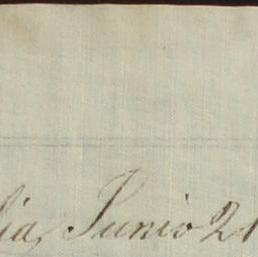 lia, Junio 21